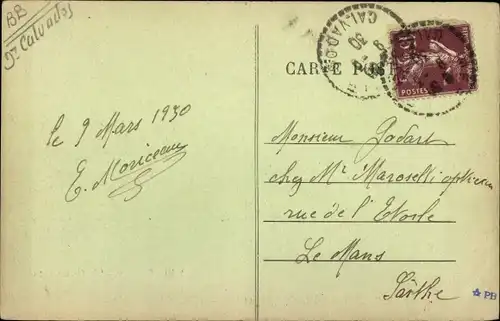 BB
Dt Calvados
CARTE POS
CALVADOS
30
POSTES
le 9 Mars 1930
E. Moriceau
Monsieur Godart
chez Mr Maroselli opticien
rue de l'Etoile
Le Mans
Sarthe
PB